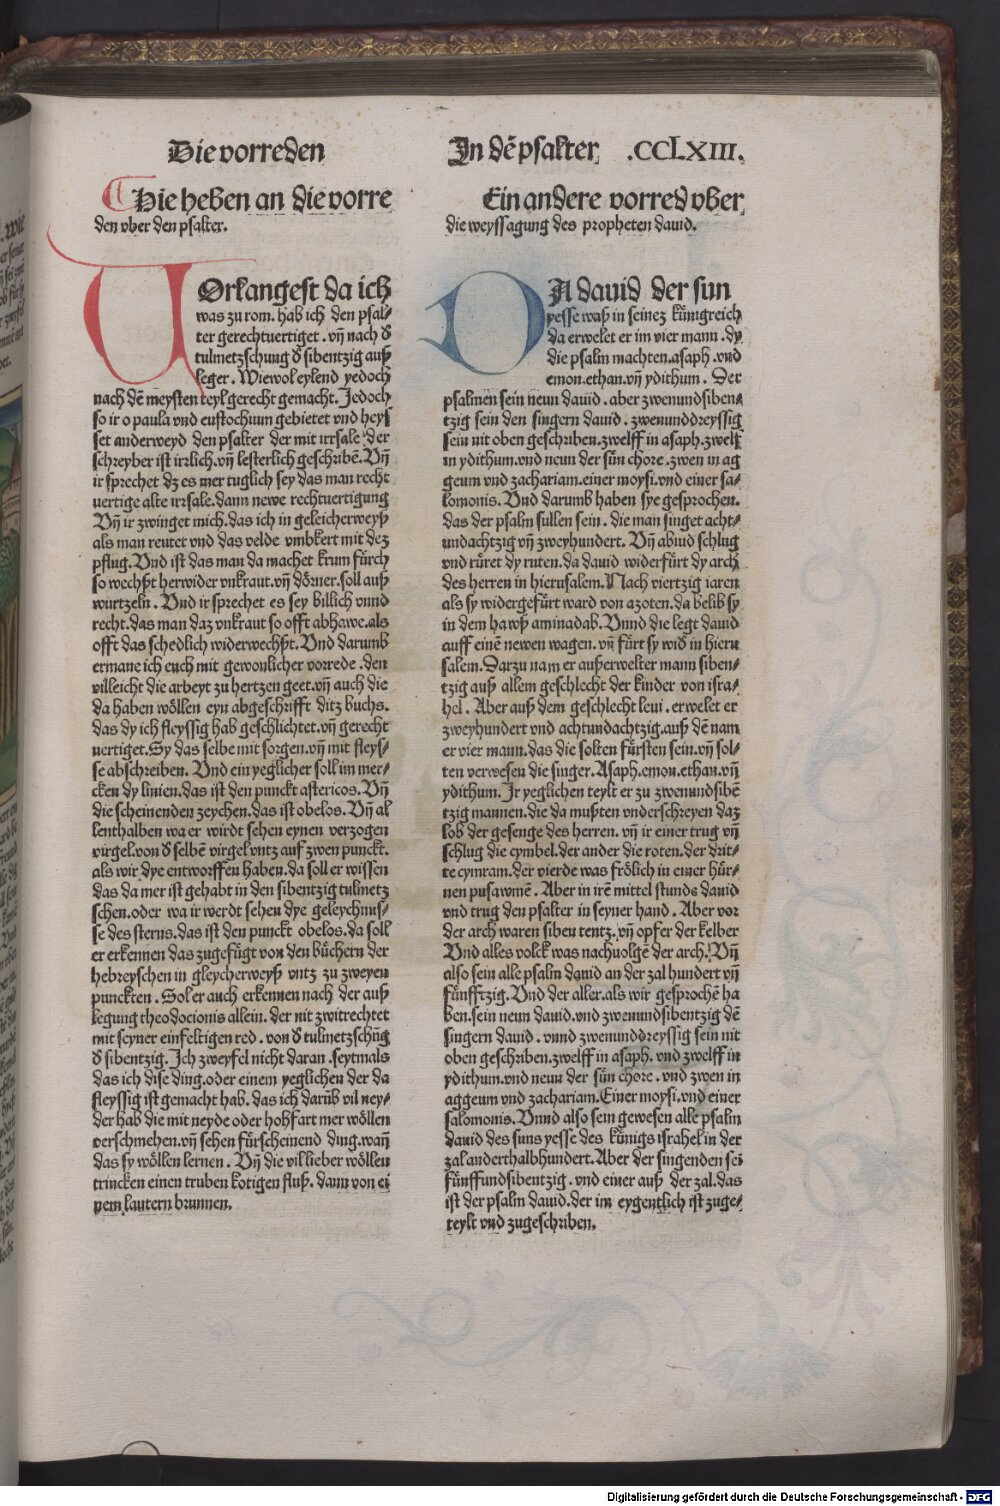 Die vorreden
In dē psalter .CCLXIII.
Hie heben an die vorre
den vber den psalter.
VOrlangest da ich
was zu rom. hab ich den psal⸗
ter gerechtuertiget. vn̄ nach d̕
tulmetzschung d̕ sibentzig auß
leger. Wiewol eylend yedoch
nach dē meysten teyl gerecht gemacht. Jedoch
so ir o paula vnd eustochium gebietet vnd heys
set anderweyd den psalter der mit irrsale der
schreyber ist irrlich. vn̄ lesterlich geschribē. Vn̄
ir sprechet dz es mer tuglich sey das man recht
uertige alte irrsale. dann newe rechtuertigung
Vn̄ ir zwinget mich. das ich in geleicherweyß
als man reutet vnd das velde vmbkert mit dez
pflug. Vnd ist das man da machet krum fürch
so wechßt herwider vnkraut. vn̄ dörner. soll auß
wurtzeln. Vnd ir sprechet es sey billich vnnd
recht. das man daz vnkraut so offt abhawe. als
offt das schedlich widerwechßt. Vnd darumb
ermane ich euch mit gewonlicher vorrede. den
villeicht die arbeyt zu hertzen geet. vn̄ auch die
da haben wöllen eyn abgeschrifft ditz buchs.
das dy ich fleyssig hab geschlichtet. vn̄ gerecht
uertiget. Sy das selbe mit sorgen. vn̄ mit fleys⸗
se abschreiben. Vnd ein yeglicher soll im mer⸗
cken dy linien. das ist den punckt astericos. Vn̄
die scheinenden zeychen. das ist obelos. Vn̄ al
lenthalben wa er wirdt sehen eynen verzogen
virgel. von d̕ selbē virgel vntz auf zwen punckt.
als wir dye entworffen haben. da soll er wissen
das da mer ist gehabt in den sibentzig tulmetz
schen. oder wa ir werdt sehen dye geleychnus⸗
se des sterns. das ist den punckt obelos. da soll
er erkennen das zugefügt von den büchern der
hebreyschen in gleycherweyß vntz zu zweyen
punckten. Sol er auch erkennen nach der auß
legung theodocionis allein. der nit zwitrechtet
mit seyner einfeltigen red. von d̕ tulmetzschūg
d̕ sibentzig. Ich zweyfel nicht daran. seytmals
das ich dise ding. oder einem yeglichen der da
fleyssig ist gemacht hab. das ich darūb vil ney⸗
der hab die mit neyde oder hohfart mer wöllen
verschmehen. vn̄ sehen fürscheinend ding. wan̄
das sy wöllen lernen. Vn̄ die vil lieber wöllen
trincken einen truben kotigen fluß. dann von ei
nem lautern brunnen.
Ein andere vorred vber
die weyssagung des propheten dauid.
DA dauid der sun
yesse waß in seinez künigreich
da erwelet er im vier man. dy
die psalm machten. asaph. vnd
emon. ethan. vn̄ ydithum. Der
psalmen sein neun dauid. aber zwenundsiben⸗
tzig sein den singern dauid. zwenunddreyssig
sein nit oben geschriben. zwelff in asaph. zwelf
in ydithum. vnd neun der sün chore. zwen in ag
geum vnd zachariam. einer moysi. vnd einer sa⸗
lomonis. Vnd darumb haben sye gesprochen.
das der psalm sullen sein. die man singet acht⸗
undachtzig vn̄ zweyhundert. Vn̄ abiud schlug
vnd rüret dy ruten. da dauid widerfürt dy arch
des herren in hierusalem. Nach viertzig iaren
als sy widergefürt ward von azoten. da belib sy
in dem hawß aminadab. Vnnd die legt dauid
auff einē newen wagen. vn̄ fürt sy wid̕ in hieru
salem. Darzu nam er außerwelter mann siben⸗
tzig auß allem geschlecht der kinder von isra⸗
hel. Aber auß dem geschlecht leui. erwelet er
zweyhundert vnd achtundachtzig. auß dē nam
er vier mann. das die solten fürsten sein. vn̄ sol⸗
ten verwesen die singer. Asaph. emon. ethan. vn̄
ydithum. Ir yeglichen teylt er zu zwenundsibē
tzig mannen. die da mußten vnderschreyen daz
lob der gesenge des herren. vn̄ ir einer trug vn̄
schlug die cymbel. der ander die roten. der drit⸗
te cymram. der vierde was frölich in einer hür⸗
nen pusawmē. Aber in irē mittel stunde dauid
vnd trug den psalter in seyner hand. Aber vor
der arch waren siben tentz. vn̄ opfer der kelber
Vnd alles volck was nachuolgē der arch. Vn̄
also sein alle psalm dauid an der zal hundert vn̄
fünfftzig. Vnd der aller. als wir gesprochē ha
ben. sein neun dauid. vnd zwenundsibentzig dē
singern dauid. vnnd zwenunddreyssig sein nit
oben geschriben. zwelff in asaph. vnd zwelff in
ydithum. vnd neun der sün chore. vnd zwen in
aggeum vnd zachariam. Einer moysi. vnd einer
salomonis. Vnnd also sein gewesen alle psalm
dauid des suns yesse des künigs israhel in der
zal anderthalbhundert. Aber der singenden sei
fünffundsibentzig. vnd einer auß der zal. das
ist der psalm dauid. der im eygentlich ist zuge⸗
teylt vnd zugeschriben.
Digitalisierung gefördert durch die Deutsche Forschungsgemeinschaft - DFG